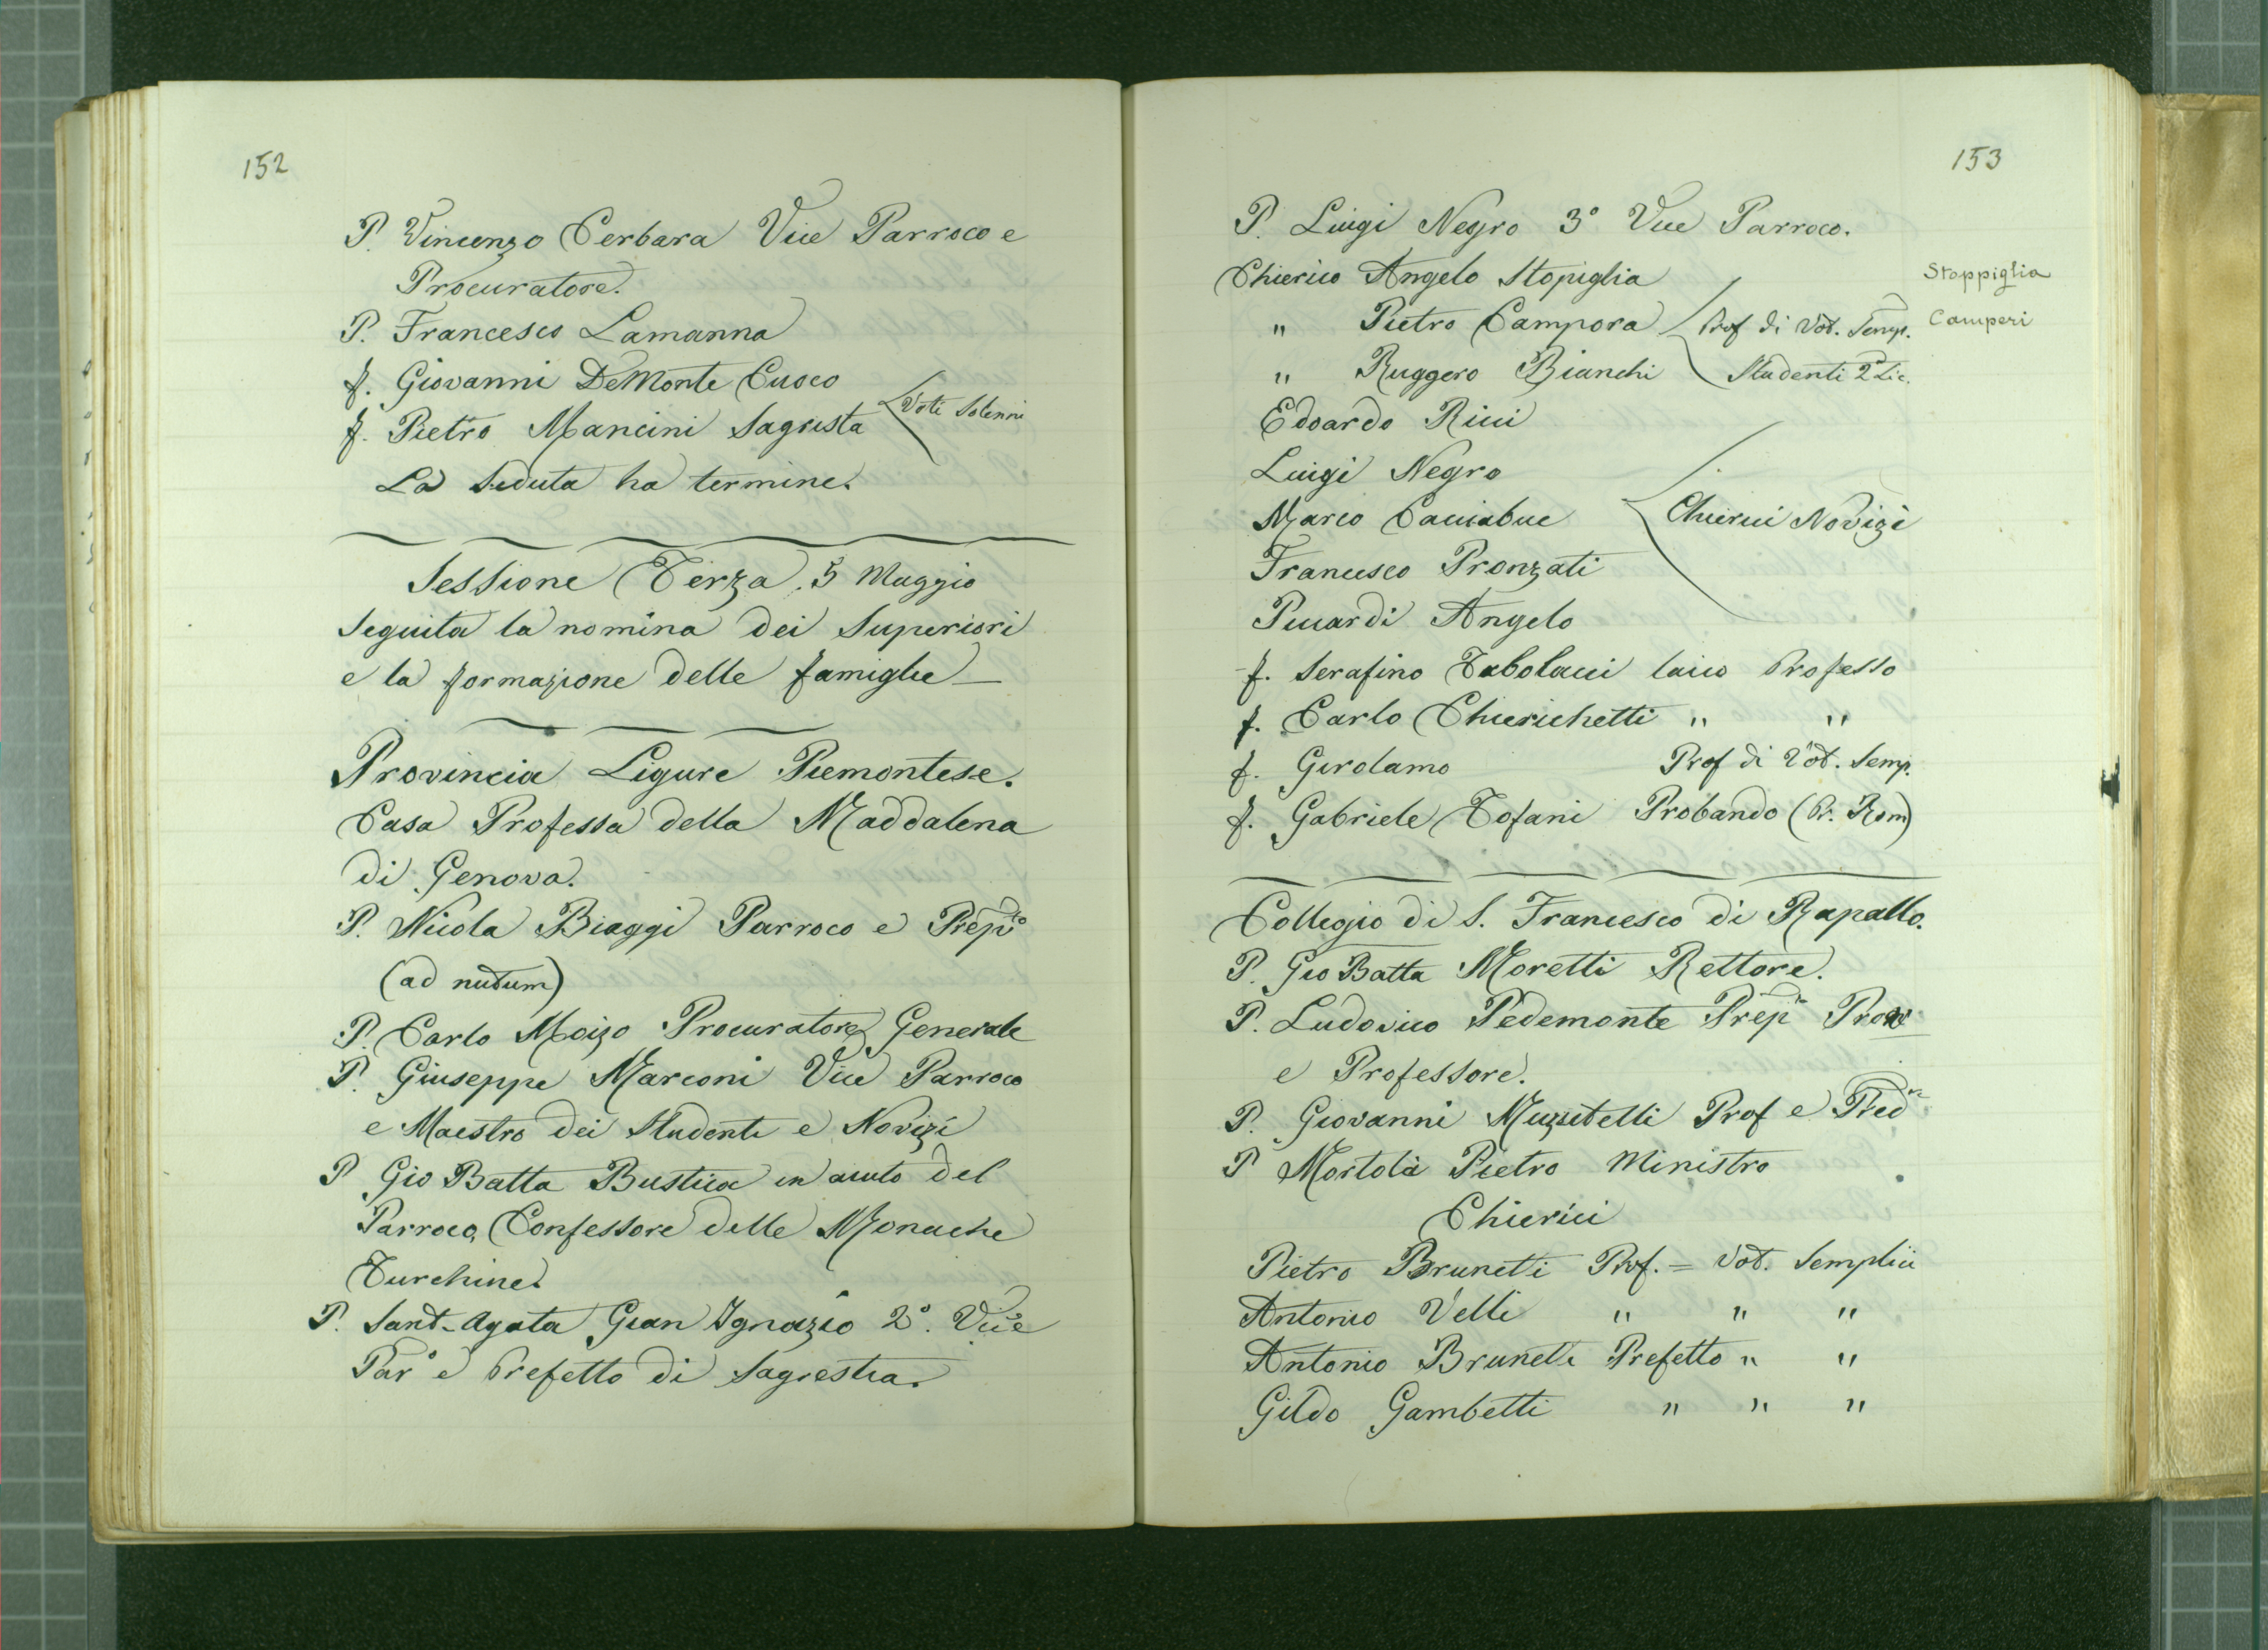 152
P. Vincenzo Cerbara Vice Parroco e
Procuratore.
P. Francesco Lamanna
f. Giovanni DeMonte Cuoco
f. Pietro Mancini Sagrista
Voti Solenni
La Seduta ha termine.
Sessione Terza. 5 Maggio
Seguita la nomina dei Superiori
e la formazione delle famiglie —
Provincia Ligure Piemontese.
Casa Professa della Maddalena
di Genova.
P. Nicola Biaggi Parroco e Prepto
(ad nutum)
P. Carlo Moizo Procuratore Generale
P. Giuseppe Marconi Vice Parroco
e Maestro dei Studenti e Novizi
P Gio Batta Bustica in aiuto del
Parroco, Confessore delle Monache
Turchine.
P. Sant-Agata Gian Ignazio 2°. Vice
Par° e Prefetto di Sagrestia.
153
P. Luigi Negro 3° Vice Parroco.
Chierico Angelo Stopiglia
Stoppiglia
" Pietro Campora Prof di Vot. Semp.
Camperi
" Ruggero Bianchi Studenti 2ª Lic.
Edoardo Ricci
Luigi Negro
Marco Cacciabue Chierici Novizi
Francesco Pronzati
Picardi Angelo
f. Serafino Tabolacci laico Professo
f. Carlo Chierichetti " "
f. Girolamo Prof di Vot. Semp.
f. Gabriele Tofani Probando (Pr. Rom)
Collegio di S. Francesco di Rapallo.
P. Gio Batta Moretti Rettore.
P. Ludovico Pedemonte Prep Prov
e Professore.
P. Giovanni Muzzitelli Prof e Pred
P Mortola Pietro Ministro
Chierici
Pietro Brunetti Prof. = Vot. Semplici
Antonio Velli " " "
Antonio Brunetti Prefetto " "
Gildo Gambetti " " "